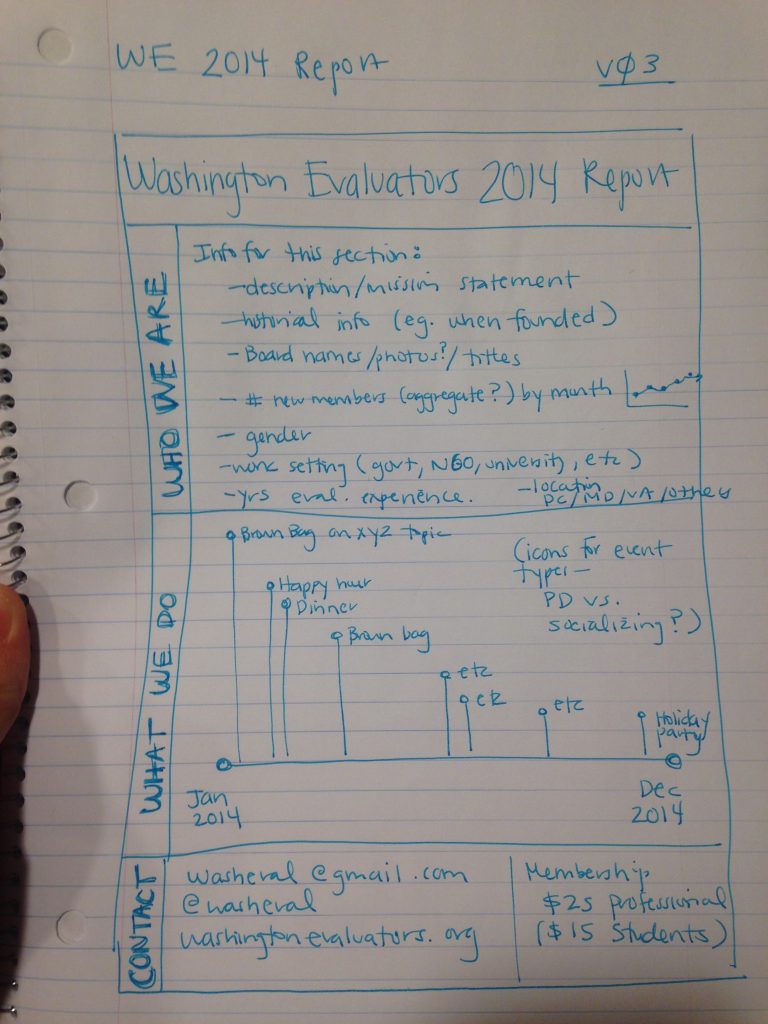 WE 2014 Report vØ3
Washington Evaluators 2014 Report
WHO WE ARE
Info for this section:
- description/mission statement
- historical info (eg. when founded)
- Board names/photos?/titles
- # new members (aggregate?) by month
- gender
- work setting (govt, NGO, university, etc)
- yrs eval. experience. - location
DC/MD/VA/other
WHAT WE DO
Brown Bag on XYZ topic
(icons for event
types -
PD vs.
socializing?)
Happy hour
Dinner
Brown bag
etc
etc
etc
Holiday
party
Jan
2014
Dec
2014
CONTACT
washeval@gmail.com
@washeval
washingtonevaluators.org
Membership
$25 professional
($15 students)